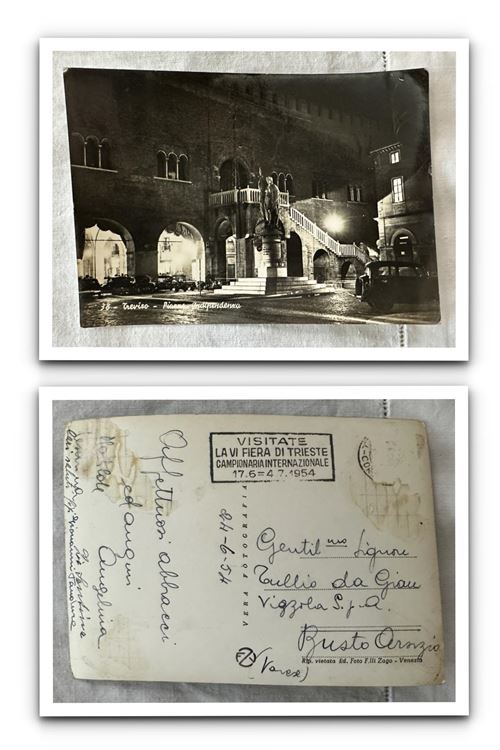 38 - Treviso - Piazza Indipendenza
VISITATE
LA VI FIERA DI TRIESTE
CAMPIONARIA INTERNAZIONALE
17.6=4.7.1954
VERA FOTOGRAFIA
24-6-54
Gentil mo Signore
Tullio da Gian
Vizzola S.p.A.
Busto Arsizio
(Varese)
Rip. vietata Ed. Foto F.lli Zago - Venezia
Affettuosi abbracci
ed auguri
Angelina
Matilde